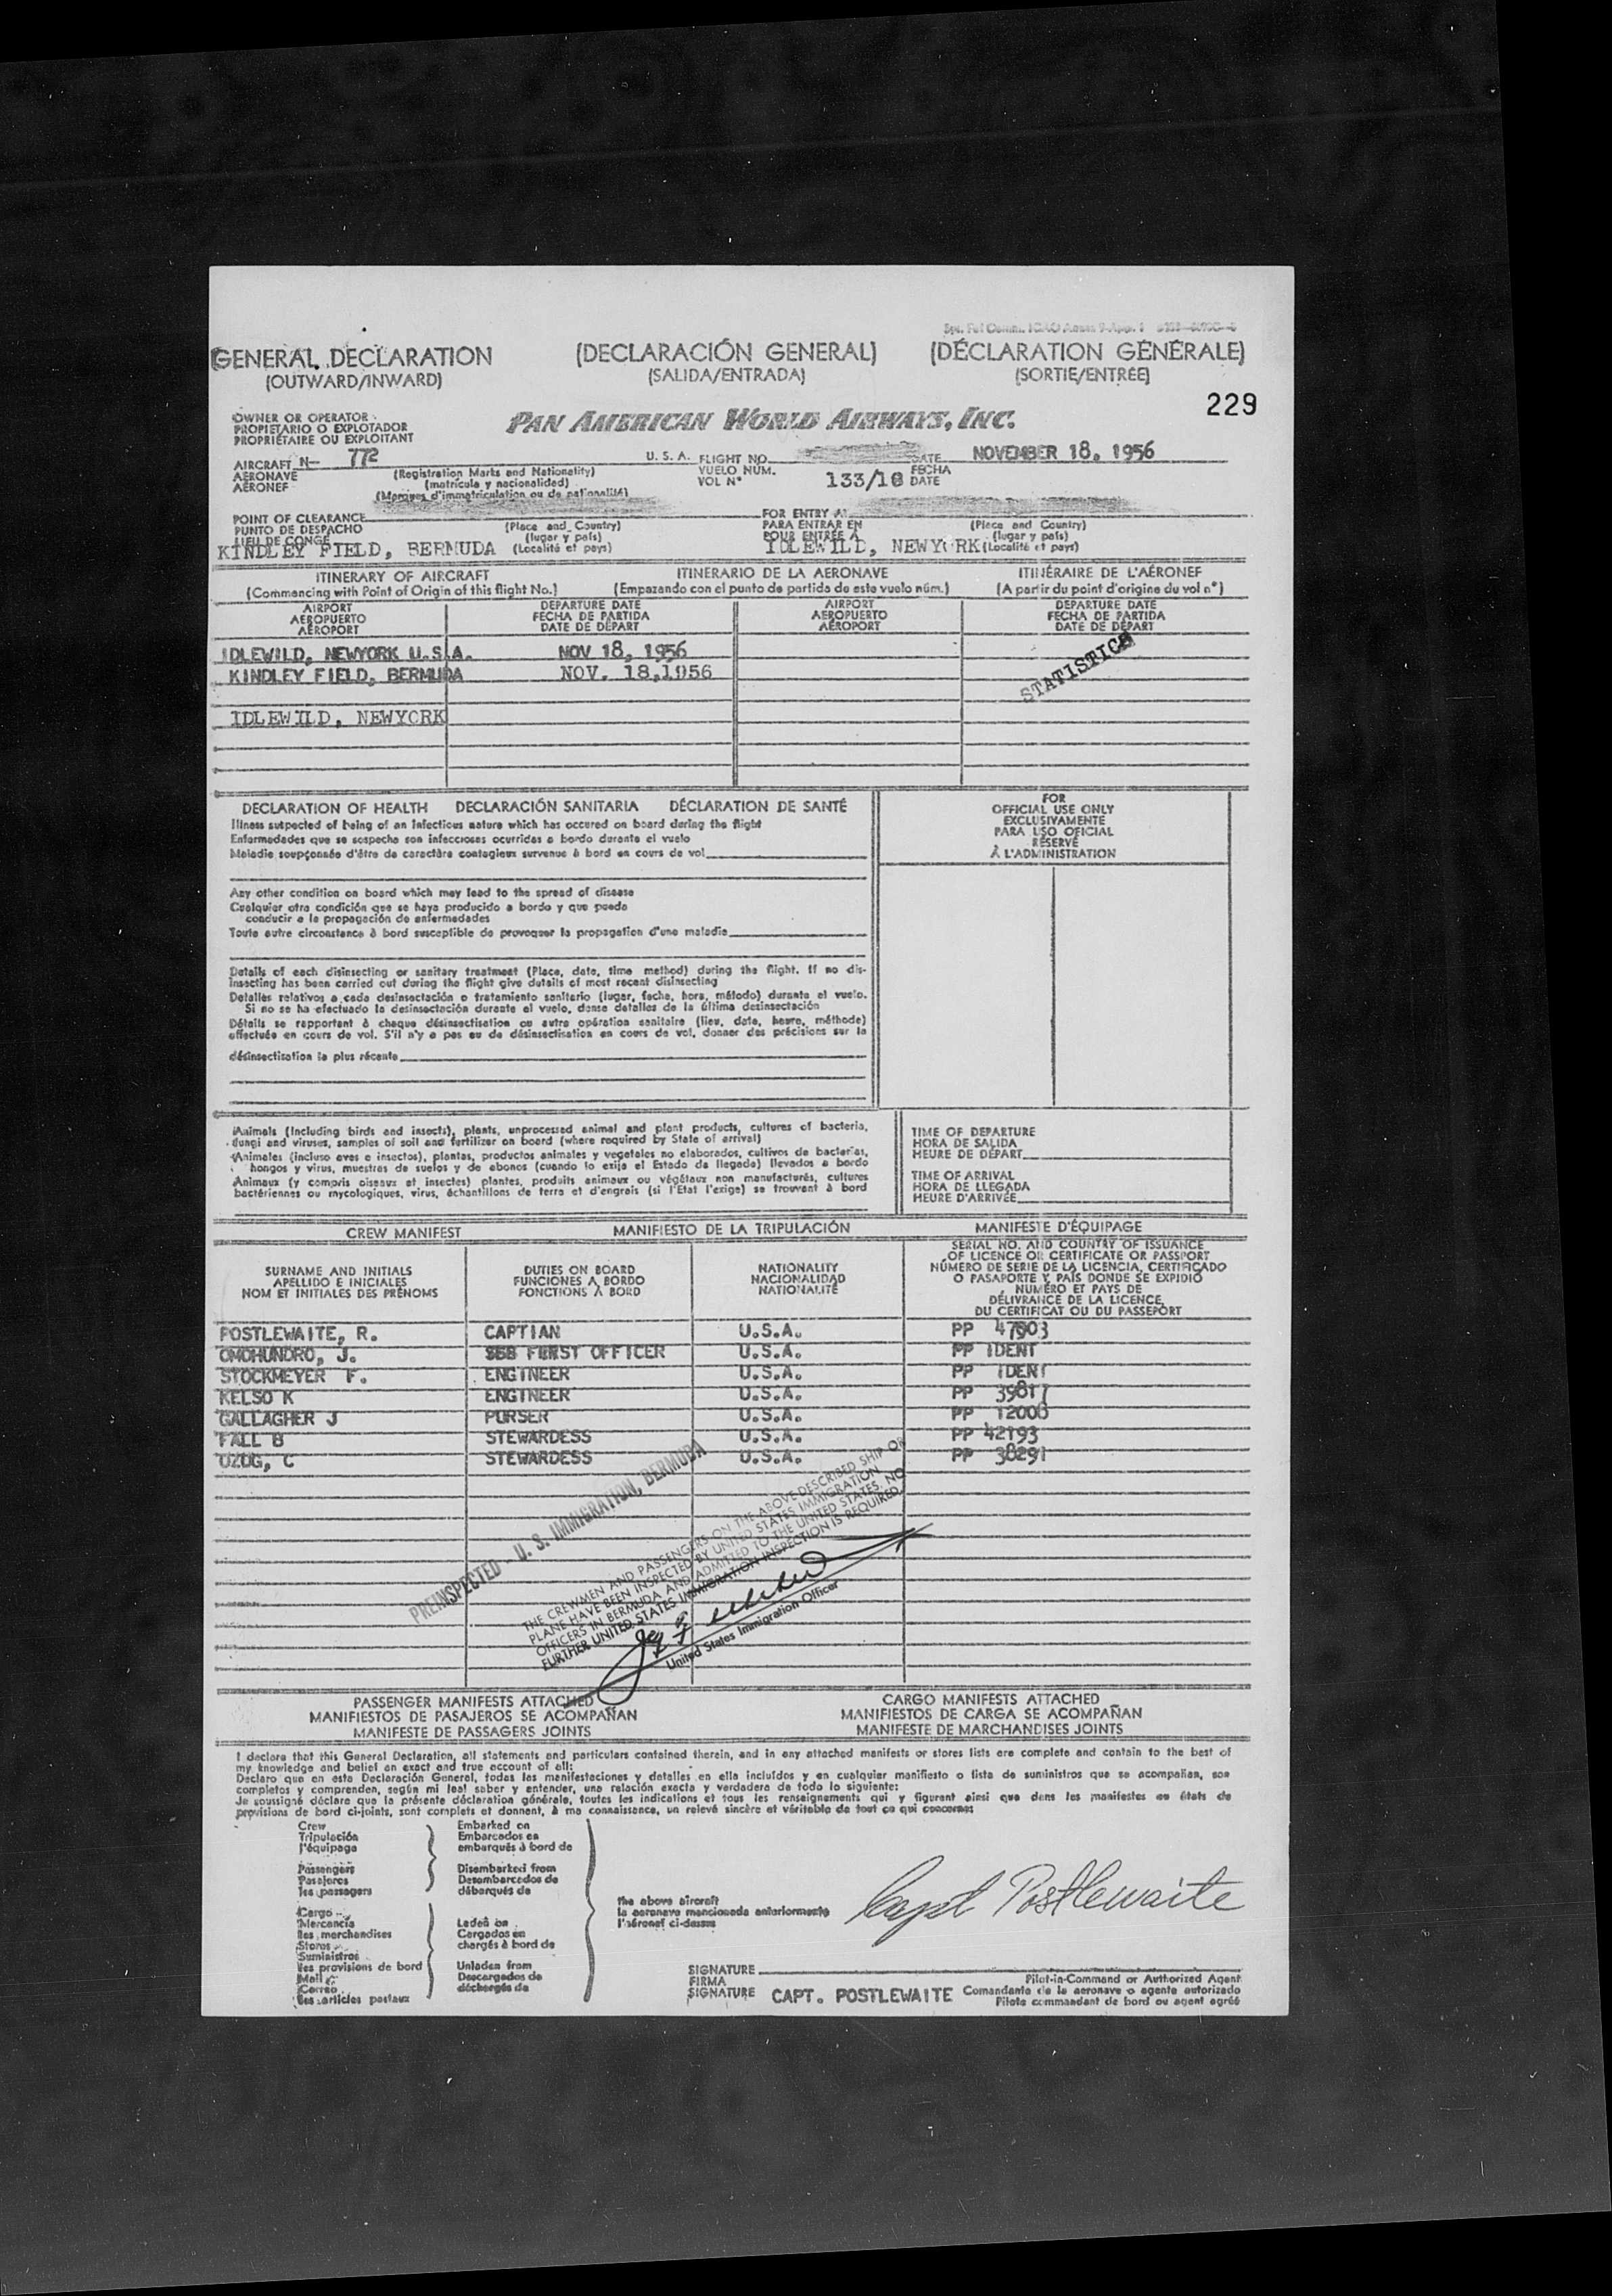 GENERAL DECLARATION (DECLARACIÓN GENERAL) (DÉCLARATION GÉNÉRALE)
(OUTWARD/INWARD) (SALIDA/ENTRADA) (SORTIE/ENTRÉE)
229
OWNER OR OPERATOR
PROPIETARIO O EXPLOTADOR
PROPRIÉTAIRE OU EXPLOITANT
PAN AMERICAN WORLD AIRWAYS, INC.
AIRCRAFT N- 772 U. S. A. FLIGHT NO. DATE NOVEMBER 18, 1956
AERONAVE (Registration Marks and Nationality) VUELO NÚM. FECHA
AÉRONEF (matrícula y nacionalidad) VOL N° 133/18 DATE
(Marques d'immatriculation ou de nationalité)
POINT OF CLEARANCE FOR ENTRY AT
PUNTO DE DESPACHO (Place and Country) PARA ENTRAR EN (Place and Country)
LIEU DE CONGÉ (lugar y país) POUR ENTRÉE À (lugar y país)
KINDLEY FIELD, BERMUDA (Localité et pays) IDLEWILD, NEWYORK (Localité et pays)
ITINERARY OF AIRCRAFT ITINERARIO DE LA AERONAVE ITINÉRAIRE DE L'AÉRONEF
(Commencing with Point of Origin of this flight No.) (Empazando con el punto de partida de este vuelo núm.) (A partir du point d'origine du vol n°)
AIRPORT DEPARTURE DATE AIRPORT DEPARTURE DATE
AEROPUERTO FECHA DE PARTIDA AEROPUERTO FECHA DE PARTIDA
AÉROPORT DATE DE DÉPART AÉROPORT DATE DE DÉPART
IDLEWILD, NEWYORK U.S.A. NOV 18, 1956
KINDLEY FIELD, BERMUDA NOV. 18,1956
STATISTICS
IDLEWILD, NEWYORK
DECLARATION OF HEALTH DECLARACIÓN SANITARIA DÉCLARATION DE SANTÉ
Illness suspected of being of an infectious nature which has occured on board during the flight
Enfermedades que se sospecha son infecciosas ocurridas a bordo durante el vuelo
Maladie soupçonnée d'être de caractère contagieux survenue à bord en cours de vol
FOR
OFFICIAL USE ONLY
EXCLUSIVAMENTE
PARA USO OFICIAL
RÉSERVÉ
À L'ADMINISTRATION
Any other condition on board which may lead to the spread of disease
Cualquier otra condición que se haya producido a bordo y que pueda
conducir a la propagación de enfermedades
Toute autre circonstance à bord susceptible de provoquer la propagation d'une maladie
Details of each disinsecting or sanitary treatment (Place, date, time method) during the flight. If no dis-
insecting has been carried out during the flight give details of most recent disinsecting
Detalles relativos a cada desinsectación o tratamiento sanitario (lugar, fecha, hora, método) durante el vuelo.
Si no se ha efectuado la desinsectación durante el vuelo, dense detalles de la última desinsectación
Détails se rapportant à chaque désinsectisation ou autre opération sanitaire (lieu, date, heure, méthode)
effectuée en cours de vol. S'il n'y a pas eu de désinsectisation en cours de vol, donner des précisions sur la
désinsectisation la plus récente
Animals (Including birds and insects), plants, unprocessed animal and plant products, cultures of bacteria,
fungi and viruses, samples of soil and fertilizer on board (where required by State of arrival)
Animales (incluso aves e insectos), plantas, productos animales y vegetales no elaborados, cultivos de bacterias,
hongos y virus, muestras de suelos y de abonos (cuando lo exija el Estado de llegada) llevados a bordo
Animaux (y compris oiseaux et insectes) plantes, produits animaux ou végétaux non manufacturés, cultures
bactériennes ou mycologiques, virus, échantillons de terre et d'engrais (si l'Etat l'exige) se trouvant à bord
TIME OF DEPARTURE
HORA DE SALIDA
HEURE DE DÉPART
TIME OF ARRIVAL
HORA DE LLEGADA
HEURE D'ARRIVÉE
CREW MANIFEST MANIFIESTO DE LA TRIPULACIÓN MANIFESTE D'ÉQUIPAGE
SURNAME AND INITIALS
APELLIDO E INICIALES
NOM ET INITIALES DES PRÉNOMS
DUTIES ON BOARD
FUNCIONES A BORDO
FONCTIONS À BORD
NATIONALITY
NACIONALIDAD
NATIONALITÉ
SERIAL NO. AND COUNTRY OF ISSUANCE
OF LICENCE OR CERTIFICATE OR PASSPORT
NÚMERO DE SERIE DE LA LICENCIA, CERTIFICADO
O PASAPORTE Y PAÍS DONDE SE EXPIDIÓ
NUMÉRO ET PAYS DE
DÉLIVRANCE DE LA LICENCE,
DU CERTIFICAT OU DU PASSEPORT
POSTLEWAITE, R. CAPTIAN U.S.A. PP 47903
OMOHUNDRO, J. FIRST OFFICER U.S.A. PP IDENT
STOCKMEYER F. ENGINEER U.S.A. PP IDENT
KELSO K ENGINEER U.S.A. PP 39817
GALLAGHER J PURSER U.S.A. PP 12008
FALL B STEWARDESS U.S.A. PP 42193
UZUG, C STEWARDESS U.S.A. PP 38291
PREINSPECTED - U. S. IMMIGRATION, BERMUDA
THE CREWMEN AND PASSENGERS ON THE ABOVE-DESCRIBED SHIP OR
PLANE HAVE BEEN INSPECTED BY UNITED STATES IMMIGRATION
OFFICERS IN BERMUDA AND ADMITTED TO THE UNITED STATES. NO
FURTHER UNITED STATES IMMIGRATION INSPECTION IS REQUIRED.
United States Immigration Officer
PASSENGER MANIFESTS ATTACHED CARGO MANIFESTS ATTACHED
MANIFIESTOS DE PASAJEROS SE ACOMPAÑAN MANIFIESTOS DE CARGA SE ACOMPAÑAN
MANIFESTE DE PASSAGERS JOINTS MANIFESTE DE MARCHANDISES JOINTS
I declare that this General Declaration, all statements and particulars contained therein, and in any attached manifests or stores lists are complete and contain to the best of
my knowledge and belief an exact and true account of all:
Declaro que en esta Declaración General, todas las manifestaciones y detalles en ella incluídos y en cualquier manifiesto o lista de suministros que se acompañan, son
completos y comprenden, según mi leal saber y entender, una relación exacta y verdadera de todo lo siguiente:
Je soussigné déclare que la présente déclaration générale, toutes les indications et tous les renseignements qui y figurent ainsi que dans les manifestes ou états de
provisions de bord ci-joints, sont complets et donnent, à ma connaissance, un relevé sincère et véritable de tout ce qui concerne:
Crew Embarked on
Tripulación Embarcados en
l'équipage embarqués à bord de
Passengers Disembarked from
Pasajeros Desembarcados de
les passagers débarqués de
Cargo
Mercancía Laded on
les marchandises Cargados en
Stores chargés à bord de
Suministros
les provisions de bord Unladen from
Mail Descargados de
Correo déchargés de
les articles postaux
the above aircraft
la aeronave mencionada anteriormente
l'aéronef ci-dessus
Capt Postlewaite
SIGNATURE
FIRMA
SIGNATURE CAPT. POSTLEWAITE
Pilot-in-Command or Authorized Agent
Comandante de la aeronave o agente autorizado
Pilote commandant de bord ou agent agréé